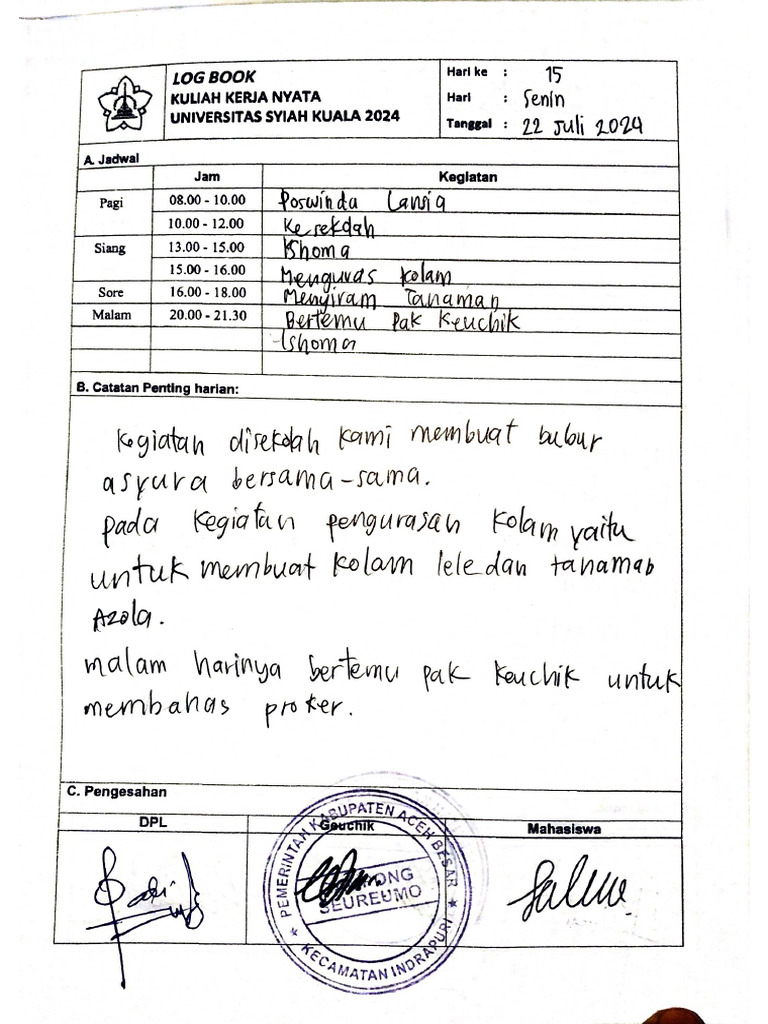 LOG BOOK
KULIAH KERJA NYATA
UNIVERSITAS SYIAH KUALA 2024
Hari ke : 15
Hari : Senin
Tanggal : 22 Juli 2024
A. Jadwal
Jam Kegiatan
Pagi 08.00 - 10.00 Poswindu Lansia
10.00 - 12.00 Kesekdah
Siang 13.00 - 15.00 Ishoma
15.00 - 16.00 Menguras kolam
Sore 16.00 - 18.00 Menyiram Tanaman
Malam 20.00 - 21.30 Bertemu Pak Keuchik
Ishoma
B. Catatan Penting harian:
Kegiatan disekolah kami membuat bubur
asyura bersama-sama.
pada kegiatan pengurasan kolam yaitu
untuk membuat kolam lele dan tanaman
Azola.
malam harinya bertemu pak Keuchik untuk
membahas proker.
C. Pengesahan
DPL Geuchik Mahasiswa
PEMERINTAH KABUPATEN ACEH BESAR
SEUREUMO
KECAMATAN INDRAPURI